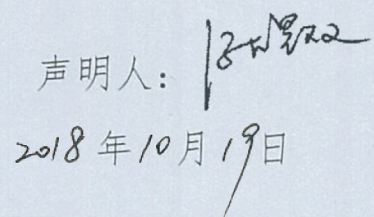 声明人:
2018年10月19日